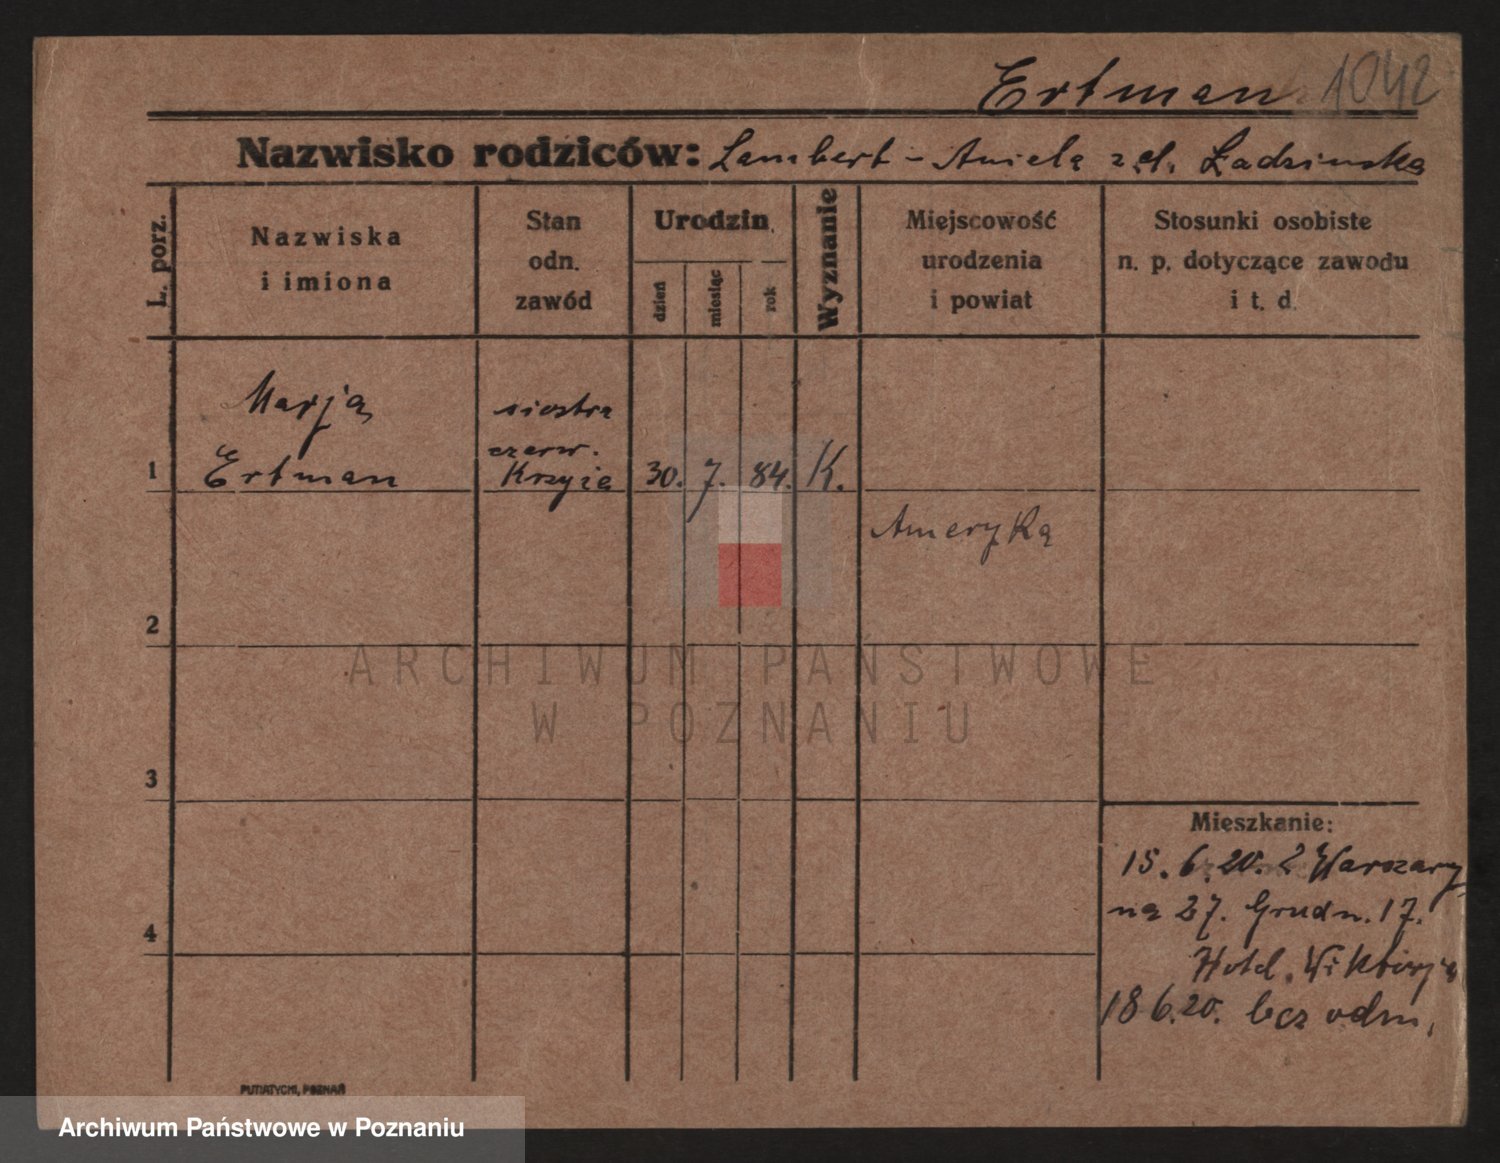 Ertman 1042
Nazwisko rodziców: Lambert - Aniela z d. Ładzinska
L. porz.
Nazwiska
i imiona
Stan
odn.
zawód
Urodzin
dzień
miesiąc
rok
Wyznanie
Miejscowość
urodzenia
i powiat
Stosunki osobiste
n. p. dotyczące zawodu
i t. d.
Marja
siostra
czerw.
1 Ertman Krzyża 30. 7. 84. K.
Ameryka
2
ARCHIWUM PAŃSTWOWE
W POZNANIU
3
Mieszkanie:
15. 6. 20. z Warszawy
na 27. Grudn. 17.
4
Hotel. Wiktorja
18 6.20. bez odm.
PUTIATYCKI, POZNAŃ
Archiwum Państwowe w Poznaniu